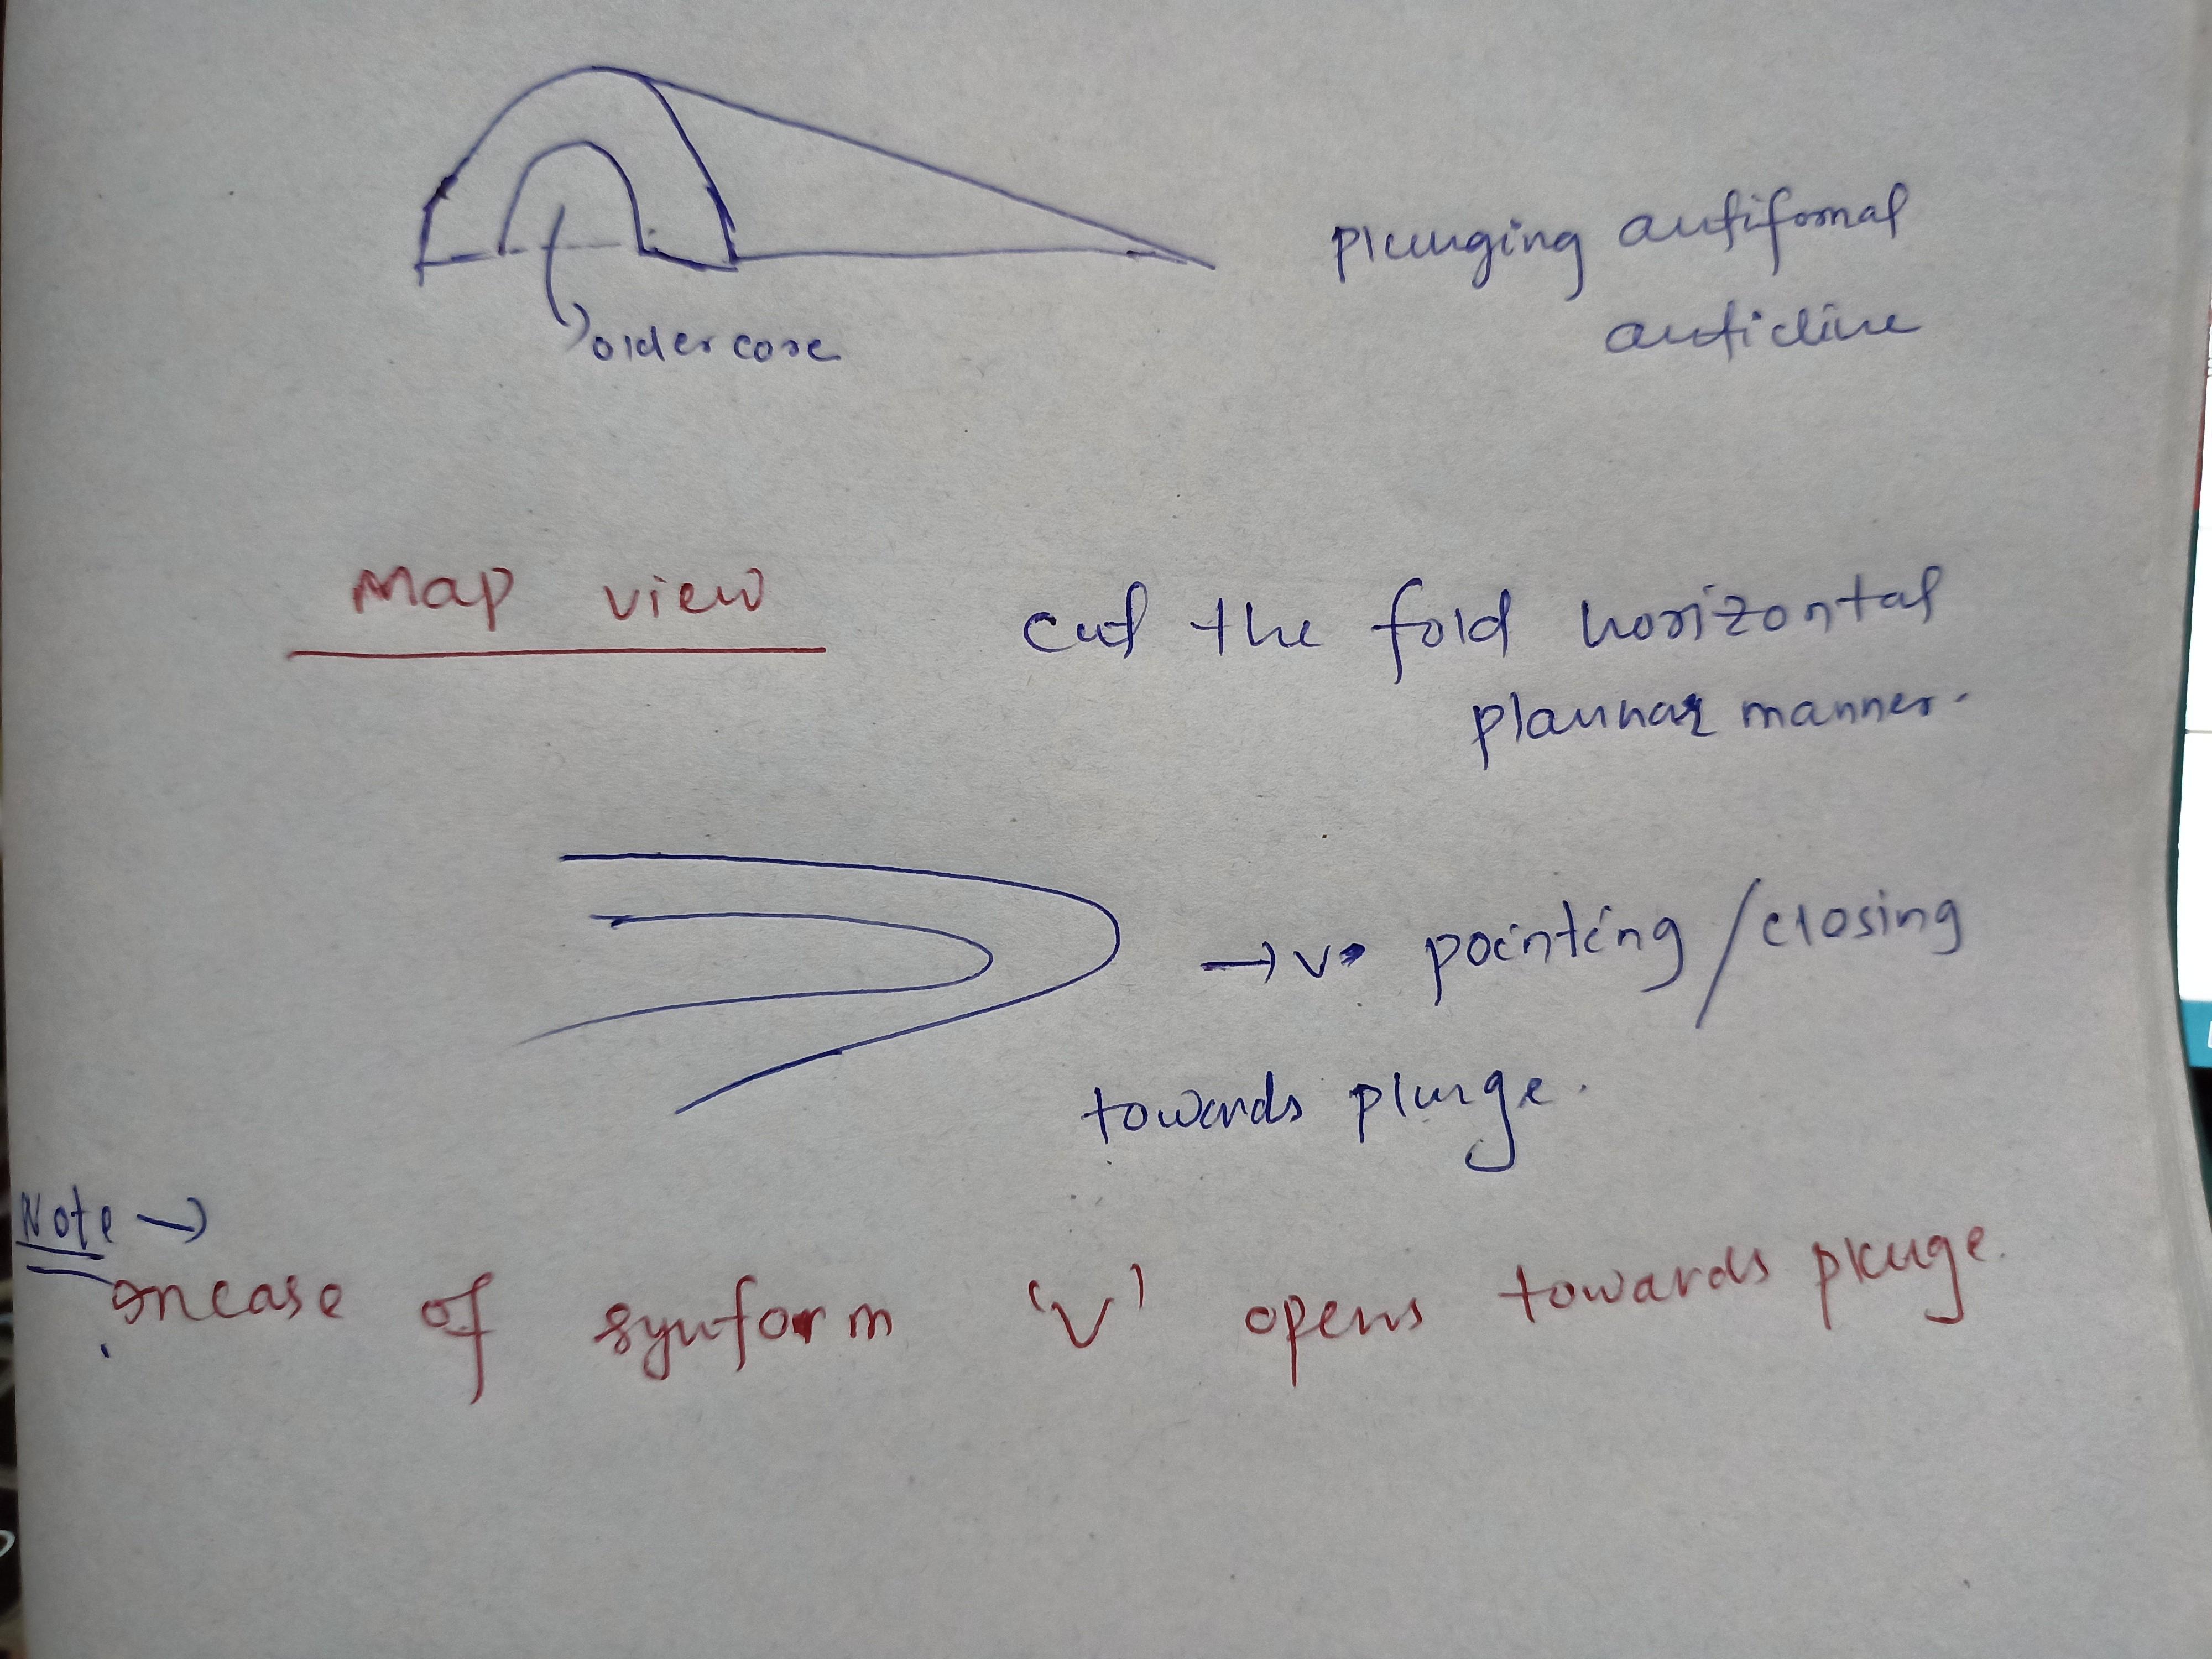 plunging antifomal
anticline
older core
Map view
cut the fold horizontal
plannar manner.
→ v. pointing/closing
towards plunge.
Note →
Incase of synform 'V' opens towards plunge.